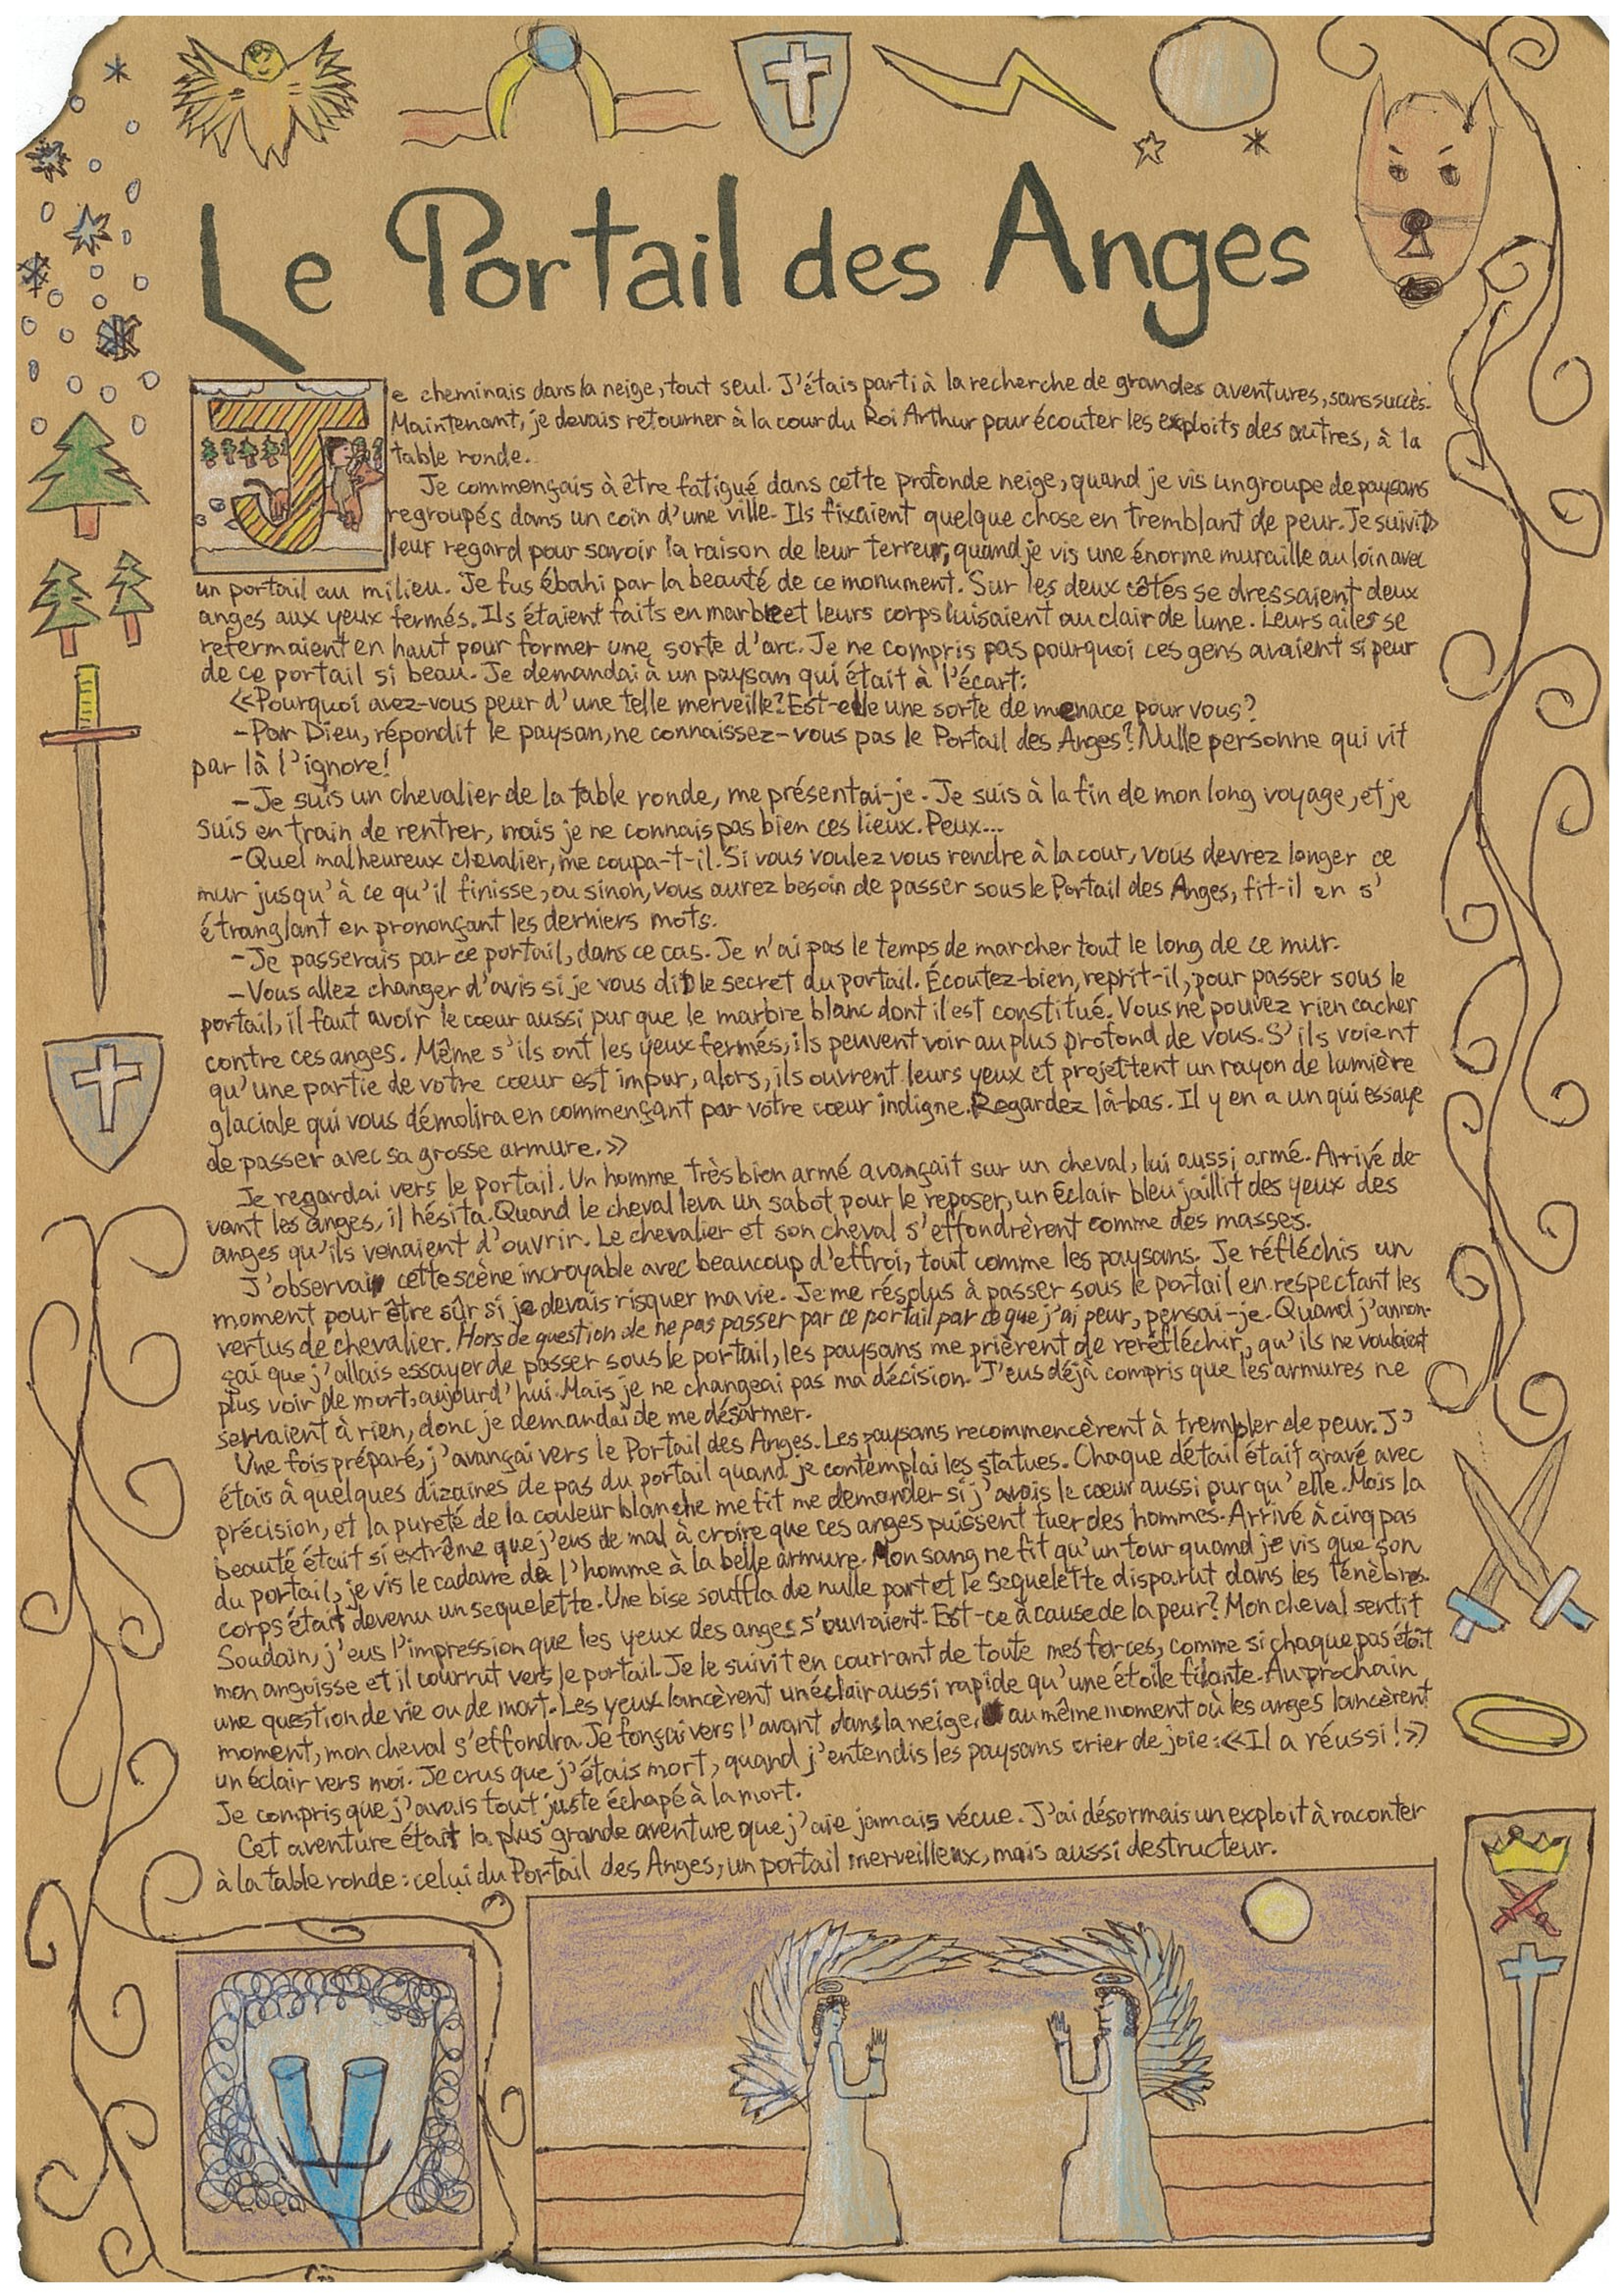 Le Portail des Anges
Je cheminais dans la neige, tout seul. J'étais parti à la recherche de grandes aventures, sans succès.
Maintenant, je devais retourner à la cour du Roi Arthur pour écouter les exploits des autres, à la
table ronde.
Je commençais à être fatigué dans cette profonde neige, quand je vis un groupe de paysans
regroupés dans un coin d'une ville. Ils fixaient quelque chose en tremblant de peur. Je suivis
leur regard pour savoir la raison de leur terreur, quand je vis une énorme muraille au loin avec
un portail au milieu. Je fus ébahi par la beauté de ce monument. Sur les deux côtés se dressaient deux
anges aux yeux fermés. Ils étaient faits en marbre et leurs corps luisaient au clair de lune. Leurs ailes se
refermaient en haut pour former une sorte d'arc. Je ne compris pas pourquoi ces gens avaient si peur
de ce portail si beau. Je demandai à un paysan qui était à l'écart:
«Pourquoi avez-vous peur d'une telle merveille? Est-elle une sorte de menace pour vous?
-Par Dieu, répondit le paysan, ne connaissez-vous pas le Portail des Anges? Nulle personne qui vit
par là l'ignore!
-Je suis un chevalier de la table ronde, me présentai-je. Je suis à la fin de mon long voyage, et je
suis en train de rentrer, mais je ne connais pas bien ces lieux. Peux...
-Quel malheureux chevalier, me coupa-t-il. Si vous voulez vous rendre à la cour, vous devrez longer ce
mur jusqu'à ce qu'il finisse, ou sinon, vous aurez besoin de passer sous le Portail des Anges, fit-il en s'
étranglant en prononçant les derniers mots.
-Je passerais par ce portail, dans ce cas. Je n'ai pas le temps de marcher tout le long de ce mur.
-Vous allez changer d'avis si je vous dis le secret du portail. Écoutez-bien, reprit-il, pour passer sous le
portail, il faut avoir le cœur aussi pur que le marbre blanc dont il est constitué. Vous ne pouvez rien cacher
contre ces anges. Même s'ils ont les yeux fermés, ils peuvent voir au plus profond de vous. S'ils voient
qu'une partie de votre cœur est impur, alors, ils ouvrent leurs yeux et projettent un rayon de lumière
glaciale qui vous démolira en commençant par votre cœur indigne. Regardez là-bas. Il y en a un qui essaye
de passer avec sa grosse armure.»
Je regardai vers le portail. Un homme très bien armé avançait sur un cheval, lui aussi armé. Arrivé de
vant les anges, il hésita. Quand le cheval leva un sabot pour le reposer, un éclair bleu jaillit des yeux des
anges qu'ils venaient d'ouvrir. Le chevalier et son cheval s'effondrèrent comme des masses.
J'observai cette scène incroyable avec beaucoup d'effroi, tout comme les paysans. Je réfléchis un
moment pour être sûr si je devais risquer ma vie. Je me résolus à passer sous le portail en respectant les
vertus de chevalier. Hors de question de ne pas passer par ce portail par ce que j'ai peur, pensai-je. Quand j'annon-
çai que j'allais essayer de passer sous le portail, les paysans me prièrent de reréfléchir, qu'ils ne voulaient
plus voir de mort, aujourd'hui. Mais je ne changeai pas ma décision. J'eus déjà compris que les armures ne
servaient à rien, donc je demandai de me désarmer.
Une fois préparé, j'avançai vers le Portail des Anges. Les paysans recommencèrent à trembler de peur. J'
étais à quelques dizaines de pas du portail quand je contemplai les statues. Chaque détail était gravé avec
précision, et la pureté de la couleur blanche me fit me demander si j'avais le cœur aussi pur qu'elle. Mais la
beauté était si extrême que j'eus de mal à croire que ces anges puissent tuer des hommes. Arrivé à cinq pas
du portail, je vis le cadavre de l'homme à la belle armure. Mon sang ne fit qu'un tour quand je vis que son
corps était devenu un sequelette. Une bise souffla de nulle part et le sequelette disparut dans les ténèbres.
Soudain, j'eus l'impression que les yeux des anges s'ouvraient. Est-ce à cause de la peur? Mon cheval sentit
mon angoisse et il courrut vers le portail. Je le suivit en courrant de toute mes forces, comme si chaque pas était
une question de vie ou de mort. Les yeux lancèrent un éclair aussi rapide qu'une étoile filante. Au prochain
moment, mon cheval s'effondra. Je fonçai vers l'avant dans la neige, au même moment où les anges lancèrent
un éclair vers moi. Je crus que j'étais mort, quand j'entendis les paysans crier de joie: «Il a réussi!»
Je compris que j'avais tout juste échapé à la mort.
Cet aventure était la plus grande aventure que j'aie jamais vécue. J'ai désormais un exploit à raconter
à la table ronde: celui du Portail des Anges, un portail merveilleux, mais aussi destructeur.